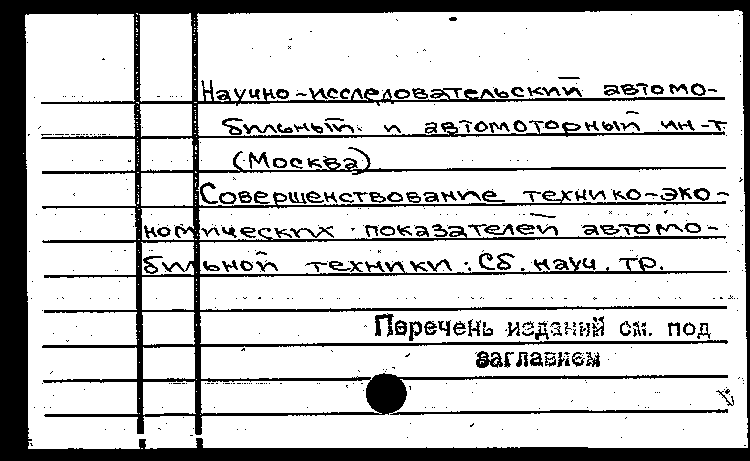 Научно-исследовательский автомо-
бильный и автомоторный ин-т
(Москва)
Совершенствование технико-эко-
номических показателей автомо-
бильной техники: Сб. науч. тр.
Перечень изданий см. под
заглавием